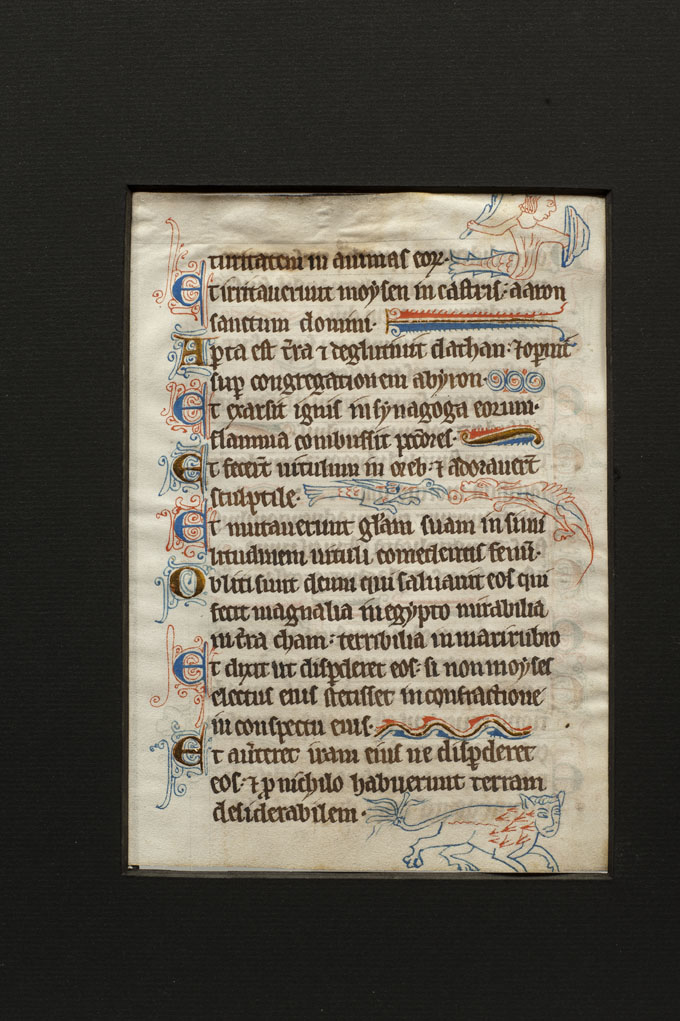 turitatem in animas eoꝝ·
Et irritauerunt moysen in castris: aaron
sanctum domini·
Apta est t̄ra ⁊ deglutiuit dathan: ⁊ opuit
sup congregationem abyron·
Et exarsit ignis in synagoga eorum·
flamma combussit pctōres·
Et fecert̄ uitulum in oreb: ⁊ adorauert̄
sculptile·
Et mutauerunt gl̄am suam in simi
litudinem uituli comedentis fenū·
Obliti sunt deum qui saluauit eos qui
fecit magnalia in egypto mirabilia
in t̄ra cham: terribilia in mari rubro
Et dixit ut disp̄deret eos: si non moyses
electus eius stetisset in confractione
in conspectu eius·
Et auert̄et iram eius ne disp̄deret
eos· ⁊ ꝓ nichilo habuerunt terram
desiderabilem·